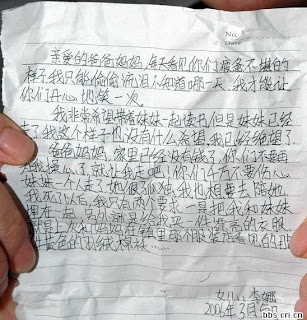 No.
Date
亲爱的爸爸妈妈,每天看见你们疲惫不堪的
样子我只能偷偷流泪不知道哪一天,我才能让
你们开心地笑一次。
我非常希望带着妹妹一起读书但是妹妹已经
走了我这个样子也没有什么希望,我已经绝望了
爸爸妈妈,家里已经没有钱了,你们不要再
为我操心了,就让我走吧!你们千万不要伤心
妹妹一个人走了她很孤独,我也想要去陪她,
我死了以后,我只有两个要求,一是把我和妹妹
埋在一起,另外就是给我买一件漂亮的衣服
就是上次和妈妈在镇里那个服装店看见的那
色的羽绒棉袄……
女儿:李娜
2006年3月5日
bbs.cri.cn